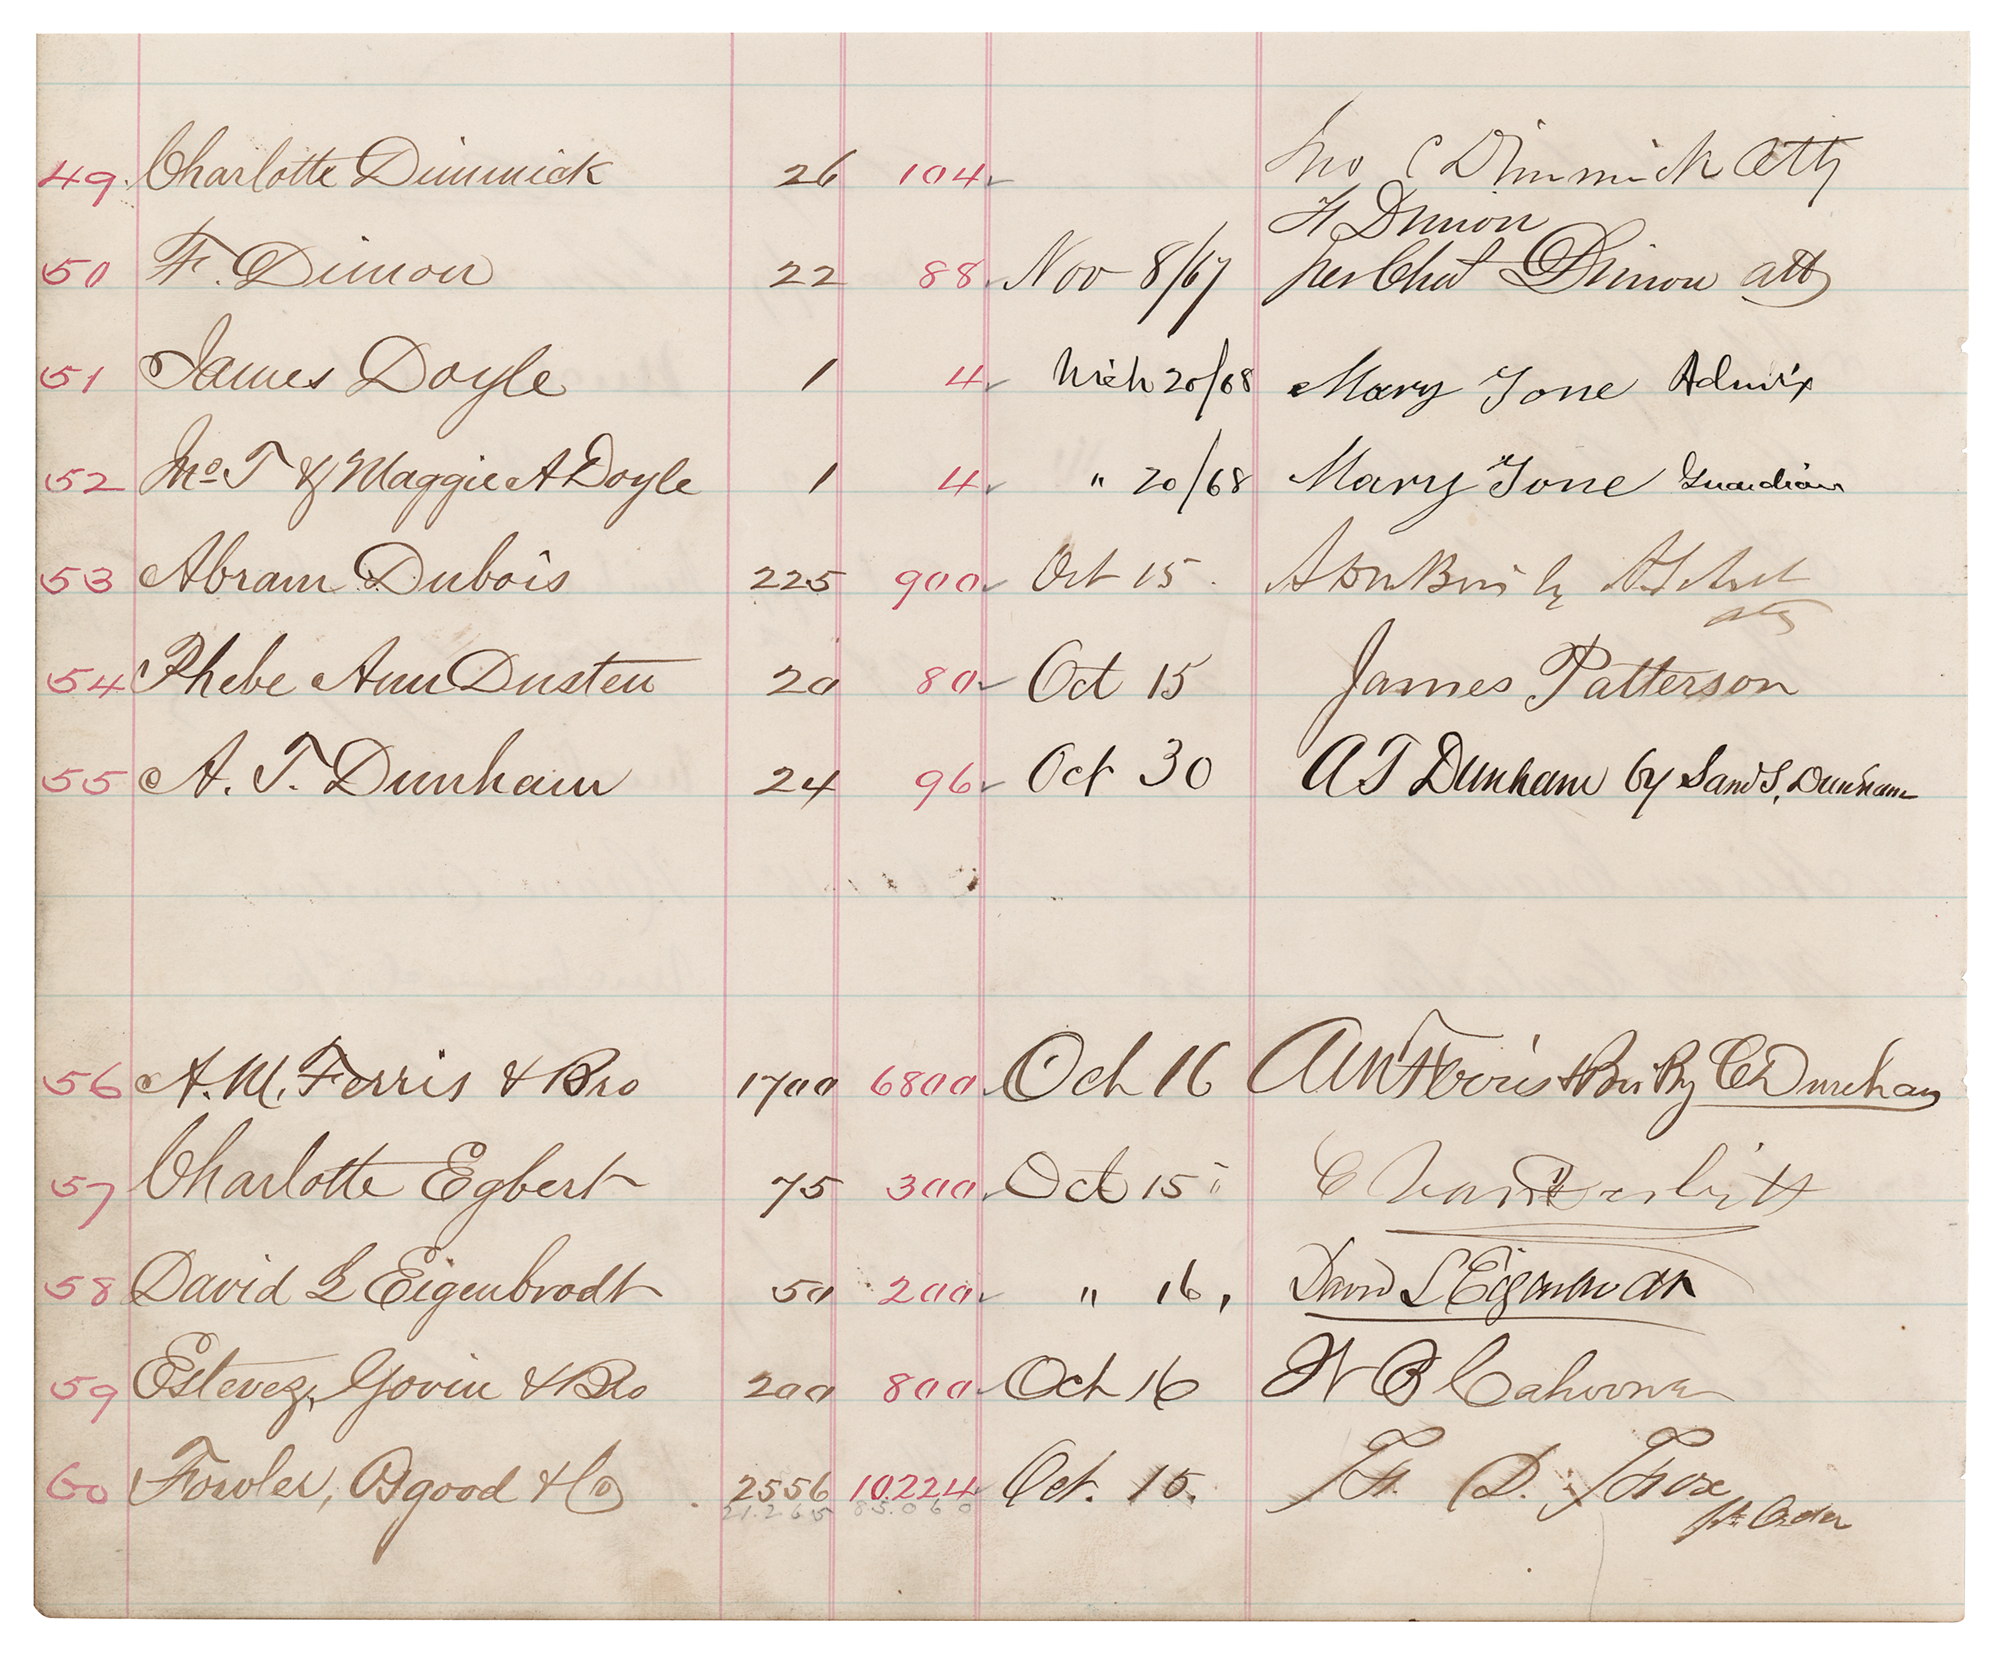 Jno C Dimmick Atty
49. Charlotte Dimmick 26 104
F Dimon
50 F. Dimon 22 88 Nov 8/67 per Chs Dimon att
51 James Doyle 1 4 Mch 20/68 Mary Tone Admix
52 Jno T & Maggie A Doyle 1 4 " 20/68 Mary Tone Guardian
53 Abram Dubois 225 900 Oct 15. A DuBois by
atty
54 Phebe Ann Dusten 20 80 Oct 15 James Patterson
55 A. T. Dunham 24 96 Oct 30 A T Dunham by Saml S. Dunham
56 A. M. Ferris & Bro 1700 6800 Oct 16 A M Ferris & Bro By C Dunham
57 Charlotte Egbert 75 300 Oct 15 C Vanderbilt
58 David L Eigenbrodt 50 200 " 16, David L Eigenbrodt
59 Estevez, Govin & Bro 200 800 Oct 16 W B Cahoone
60 Fowler, Osgood & Co 2556 10.224 Oct. 15. F. D. Fox
21.265 85.060 pr Order